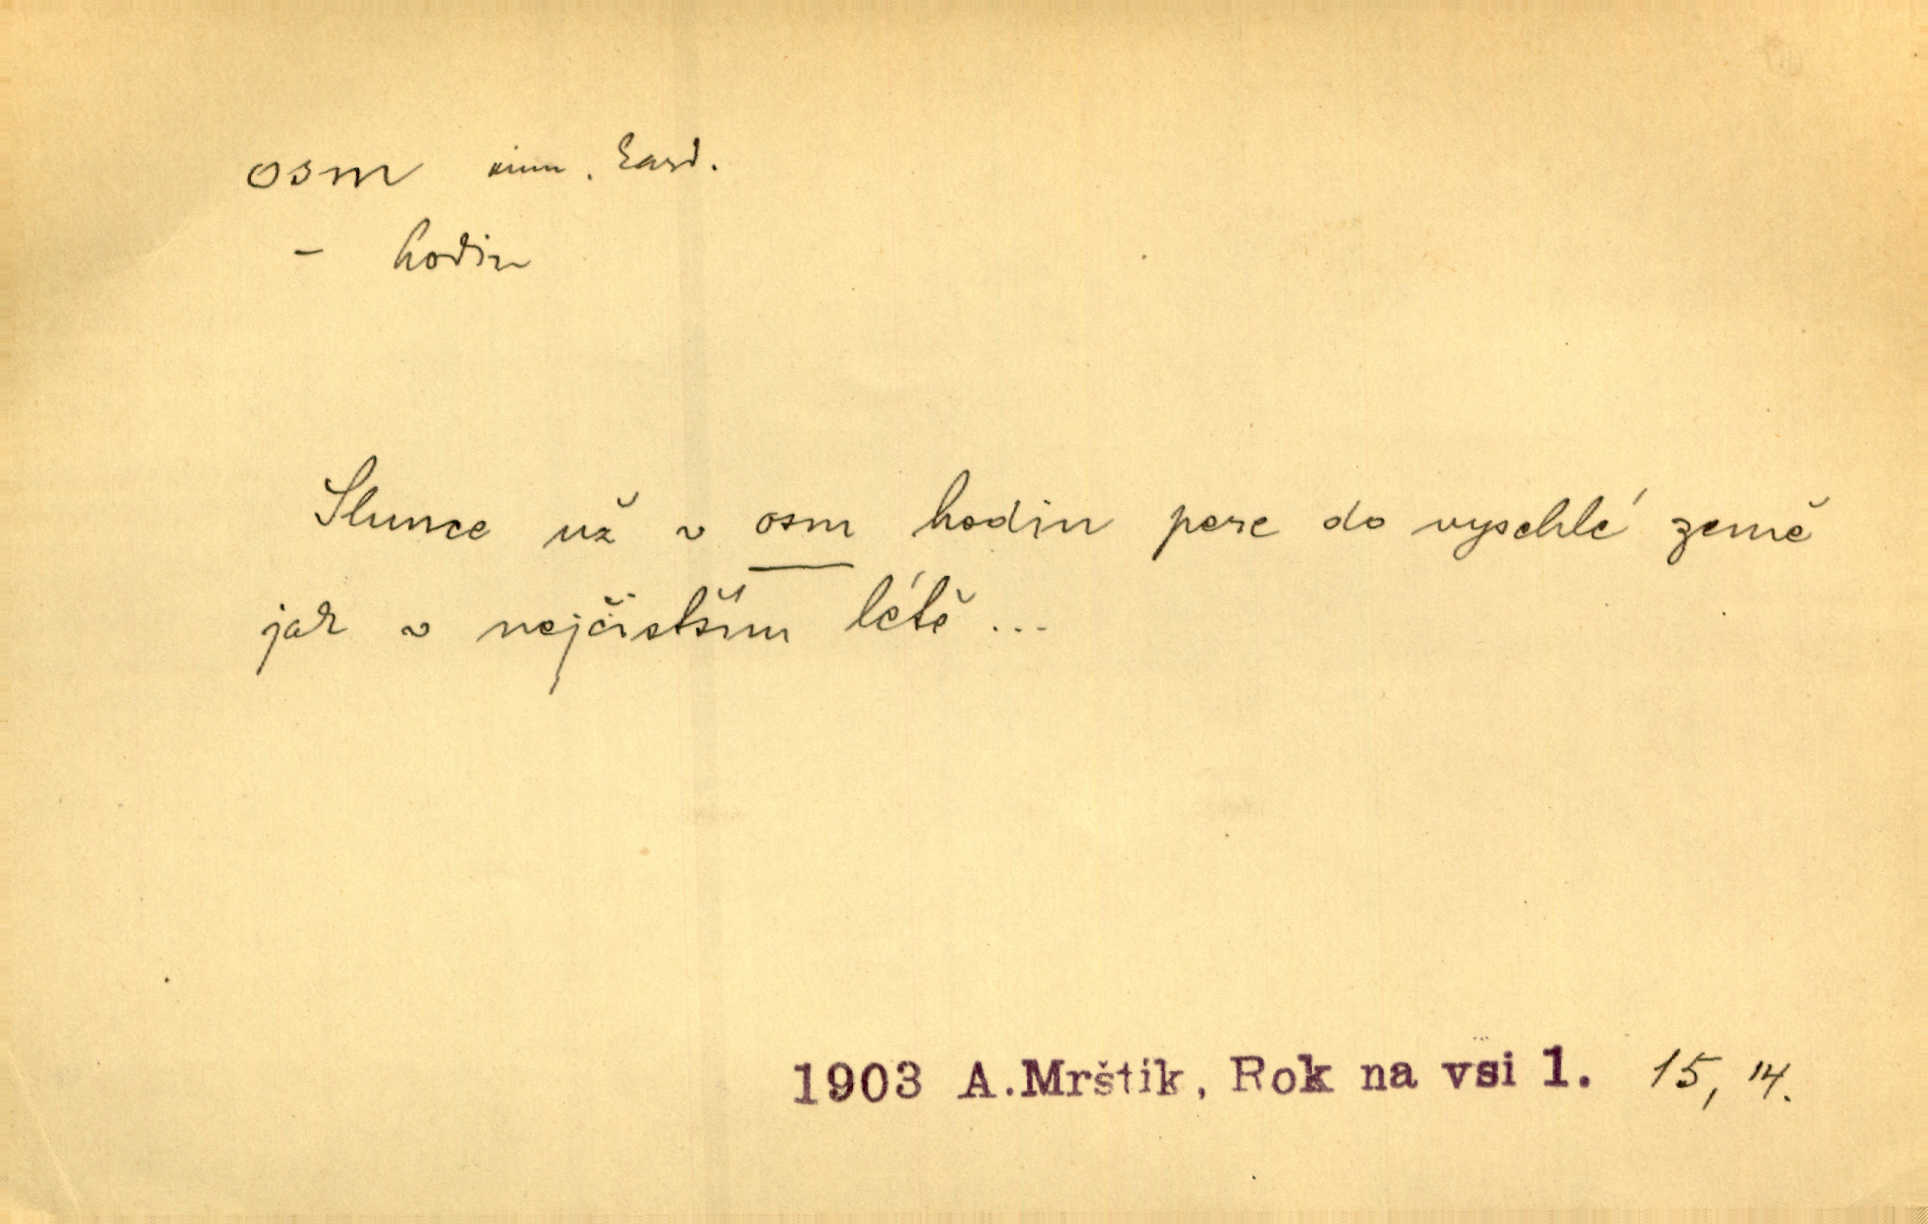 osm num. card.
- hodin
Slunce už v osm hodin pere do vyschlé země
jak v nejčistším létě ...
1903 A.Mrštík, Rok na vsi 1. 15, 14.